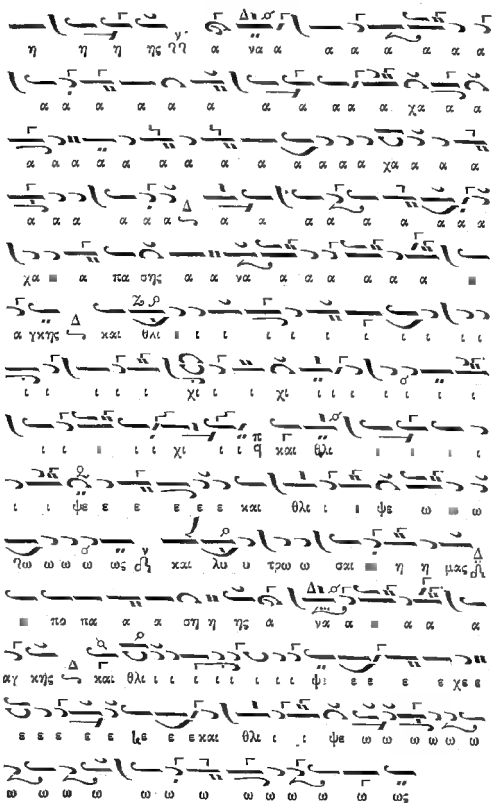 η η η ης α να α α α α α α
α α α α α α α α α α χα α α
α α α α α α α α α α α α χα α α α
α α α α α α α α α α α α α α
χα α πα σης α να α α α α α α
α γκης και θλι ι ι ι ι ι ι ι ι
ι ι ι ι ι ι χι ι ι χι ι ι ι ι ι ι ι
ι ι ι χι ι ι και θλι ι ι ι ι
ι ι ψε ε ε ε ε ε και θλι ι ι ψε ω ω
ω ω ω ω ως και λυ υ τρω ω σαι η η μας
πο πα α α ση η ης α να α α α α
αγ κης και θλι ι ι ι ι ι ι ι ι ε ε ε ε χε ε
ε ε ε ε ε ε ε και θλι ι ι ψε ω ω ω ω ω ω
ω ω ω ω ω ω ω ω ω ω ως